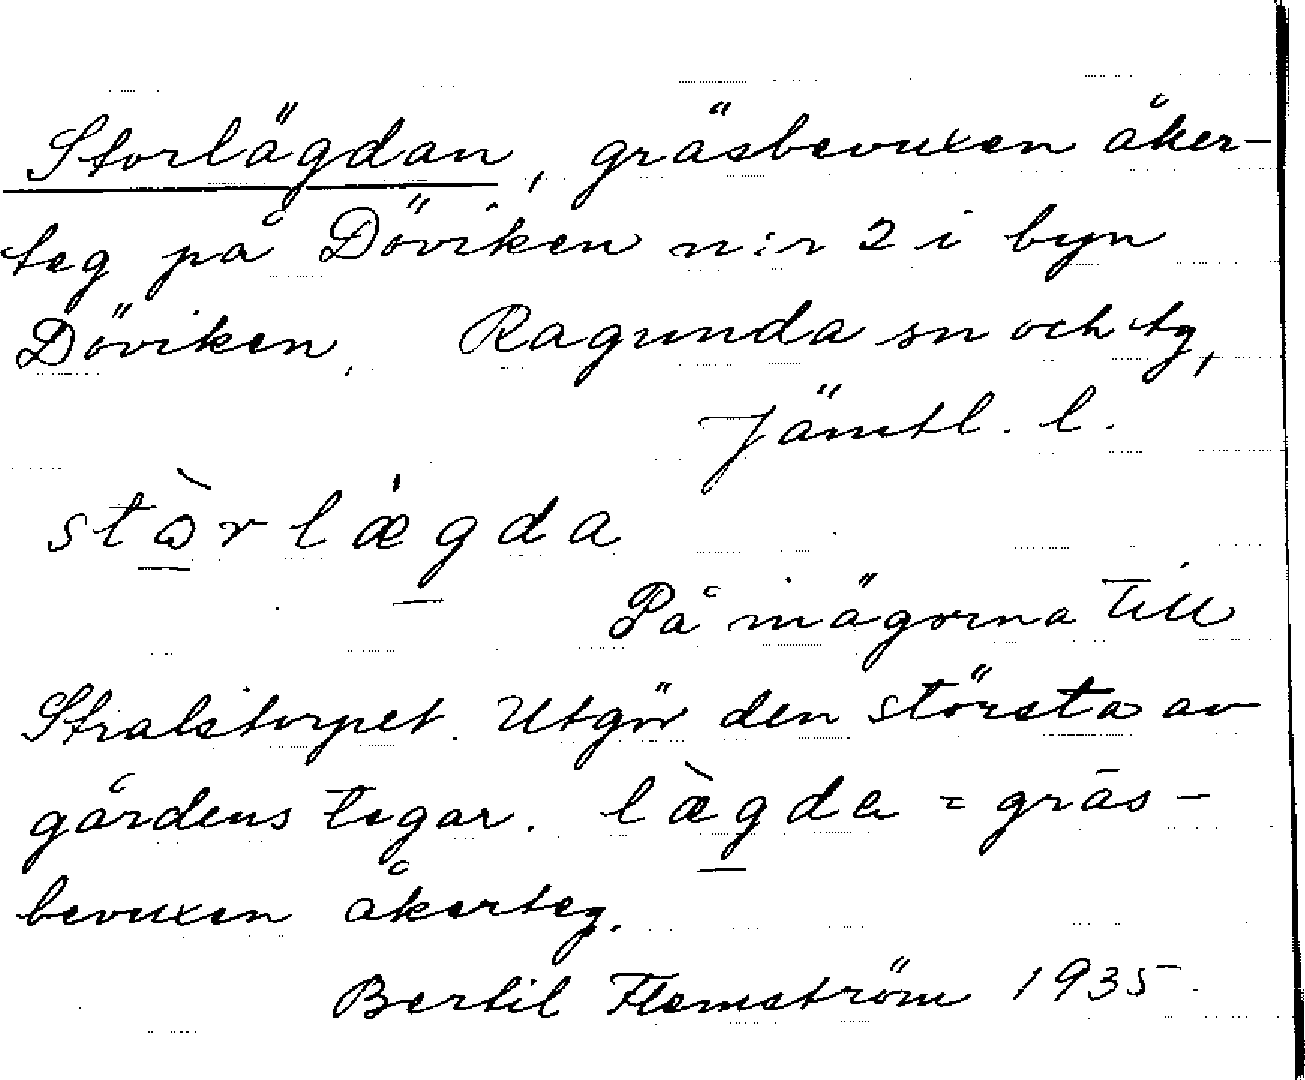 Storlägdan, gräsbevuxen åker-
teg på Döviken n:r 2 i byn
Döviken, Ragunda sn och tg,
Jämtl. l.
stɷ̀rlǽgda
På mägorna till
Stralstorpet. Utgör den största av
gårdens tegar. lægda = gräs-
bevuxen åkerteg.
Bertil Flemström 1935.